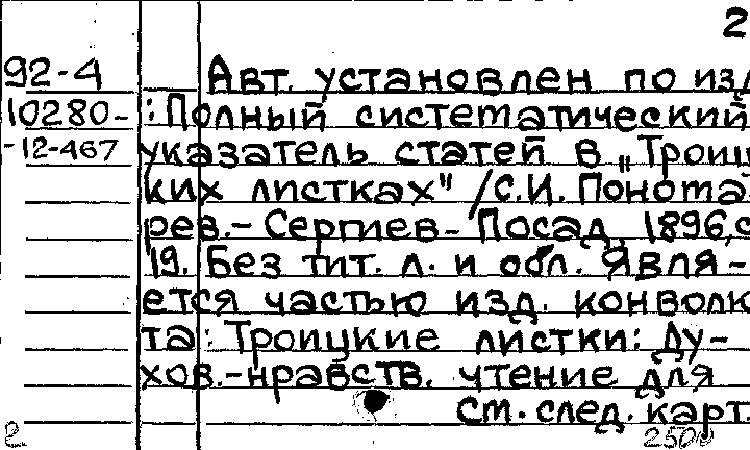 2
92-4 Авт. установлен по изд
10280- : Полный систематический
-12-467 указатель статей в "Троиц
ких листках" /С.И. Понома
рев.- Сергиев- Посад, 1896, с
19. Без тит. л. и обл. Явля-
ется частью изд. конволю
та: Троицкие листки: Ду-
хов.-нравств. чтение для
см. след. карт.
2500